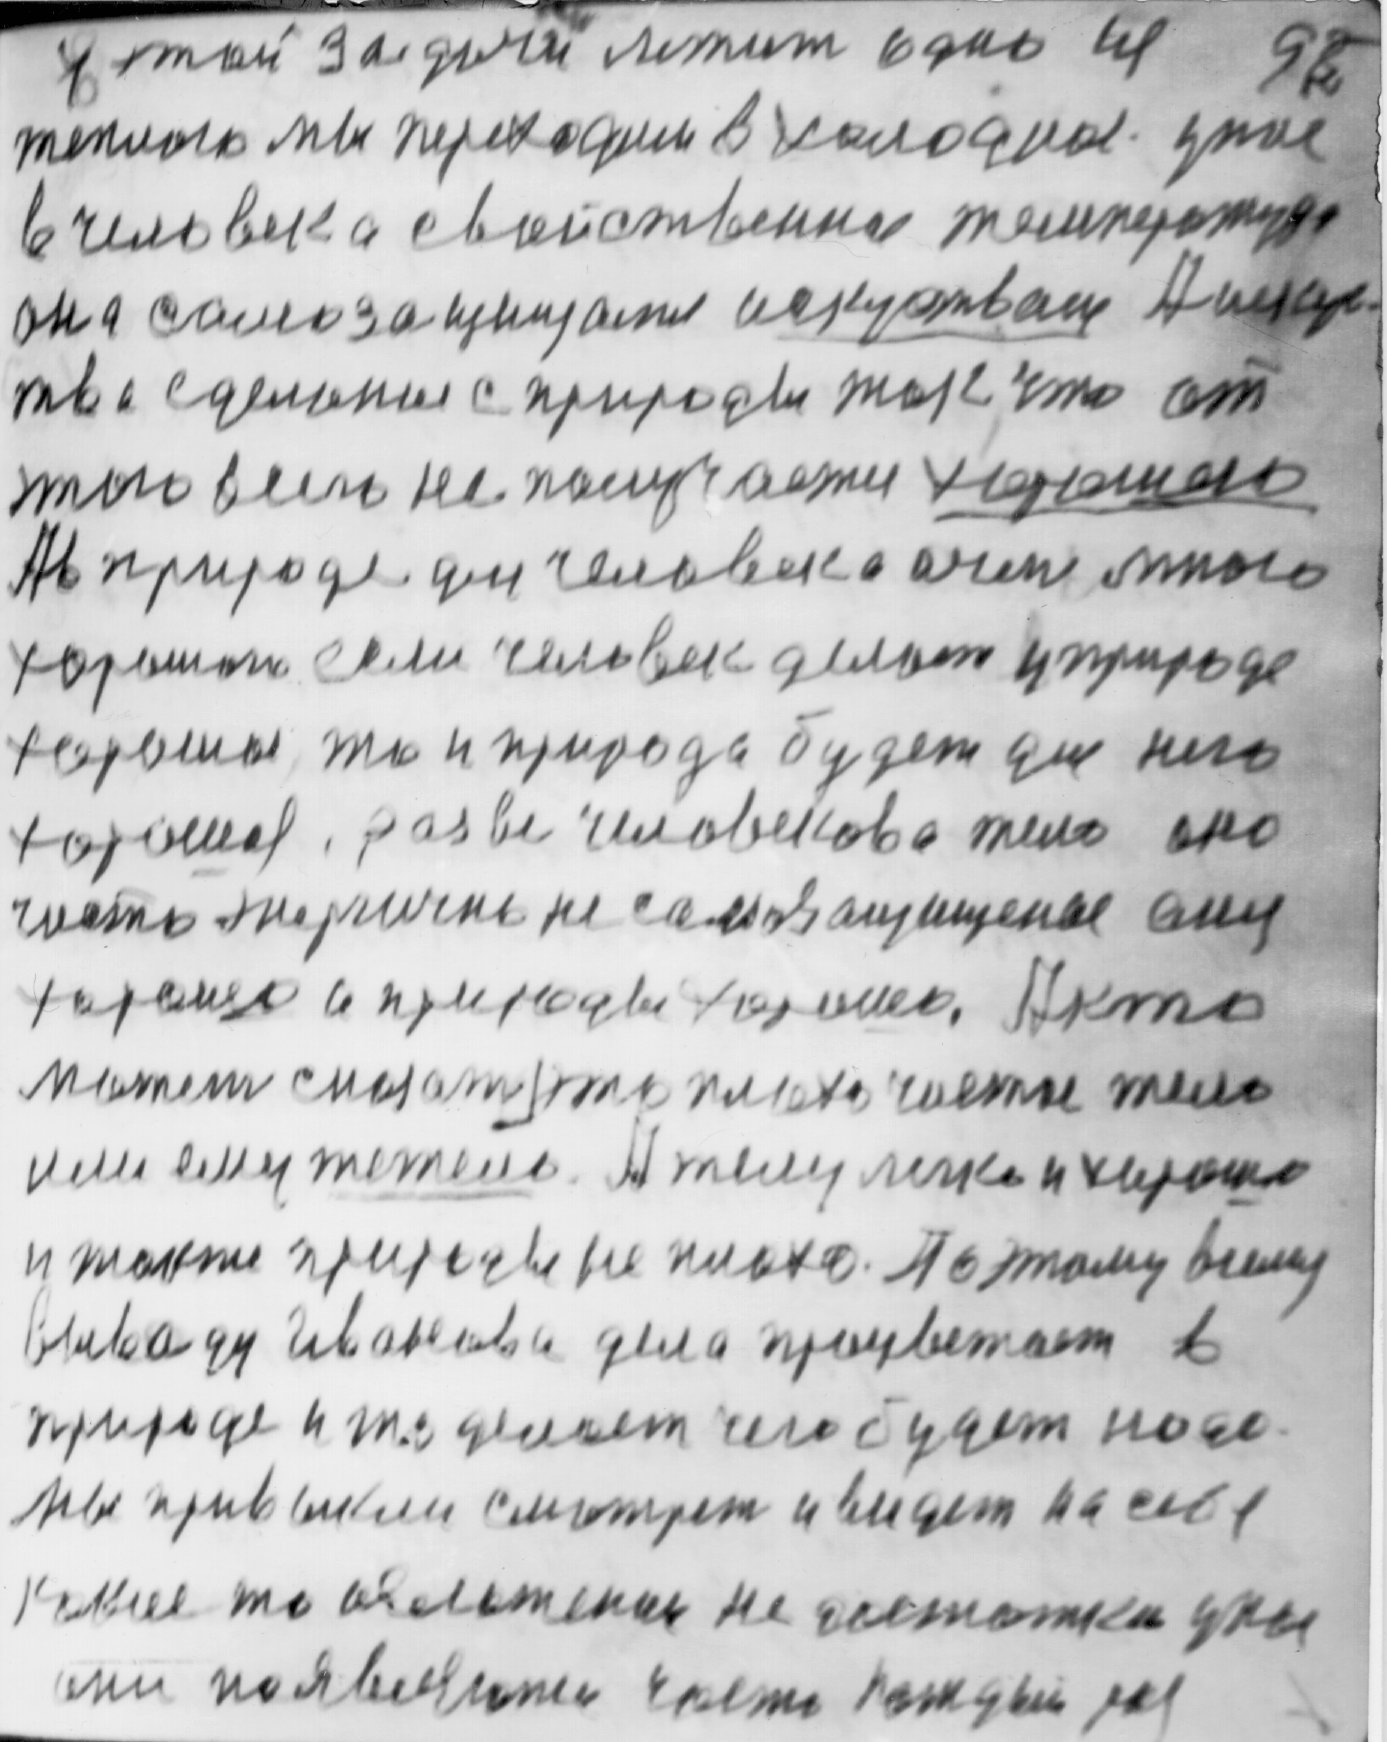 У этой задачи лежит одно из 98
теплого мы переходим в холодное. У тое
в человека свойственная температура
она самозащищатся искуством А искус-
тва сделаные с природы так что от
этого всего не получается хорошого
А в природе для человека очень много
хорошого если человек делает у природе
хорошое, то и природа будет для него
хорошая, разве человекова тело оно
часто энергична не самозащищеное ему
хорошо и природы хорошо. А кто
может сказат это плохо чистое тело
или ему тежело. А телу легко и хорошо
и также природы не плохо. Поэтому всему
выводу Иванова дела процветает в
природе и то делает чего будет надо.
мы привыкли смотрет и видет на себе
какие то обложении не достатки у нас
они появляются часто каждый раз